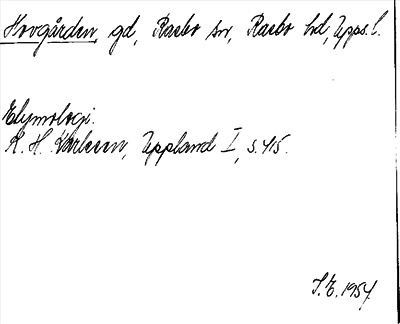 Hovgården gd, Rasbo sn, Rasbo hd, Upps. l.
Etymologi.
K. H. Karlsson, Uppland I, s. 415.
S. E. 1954